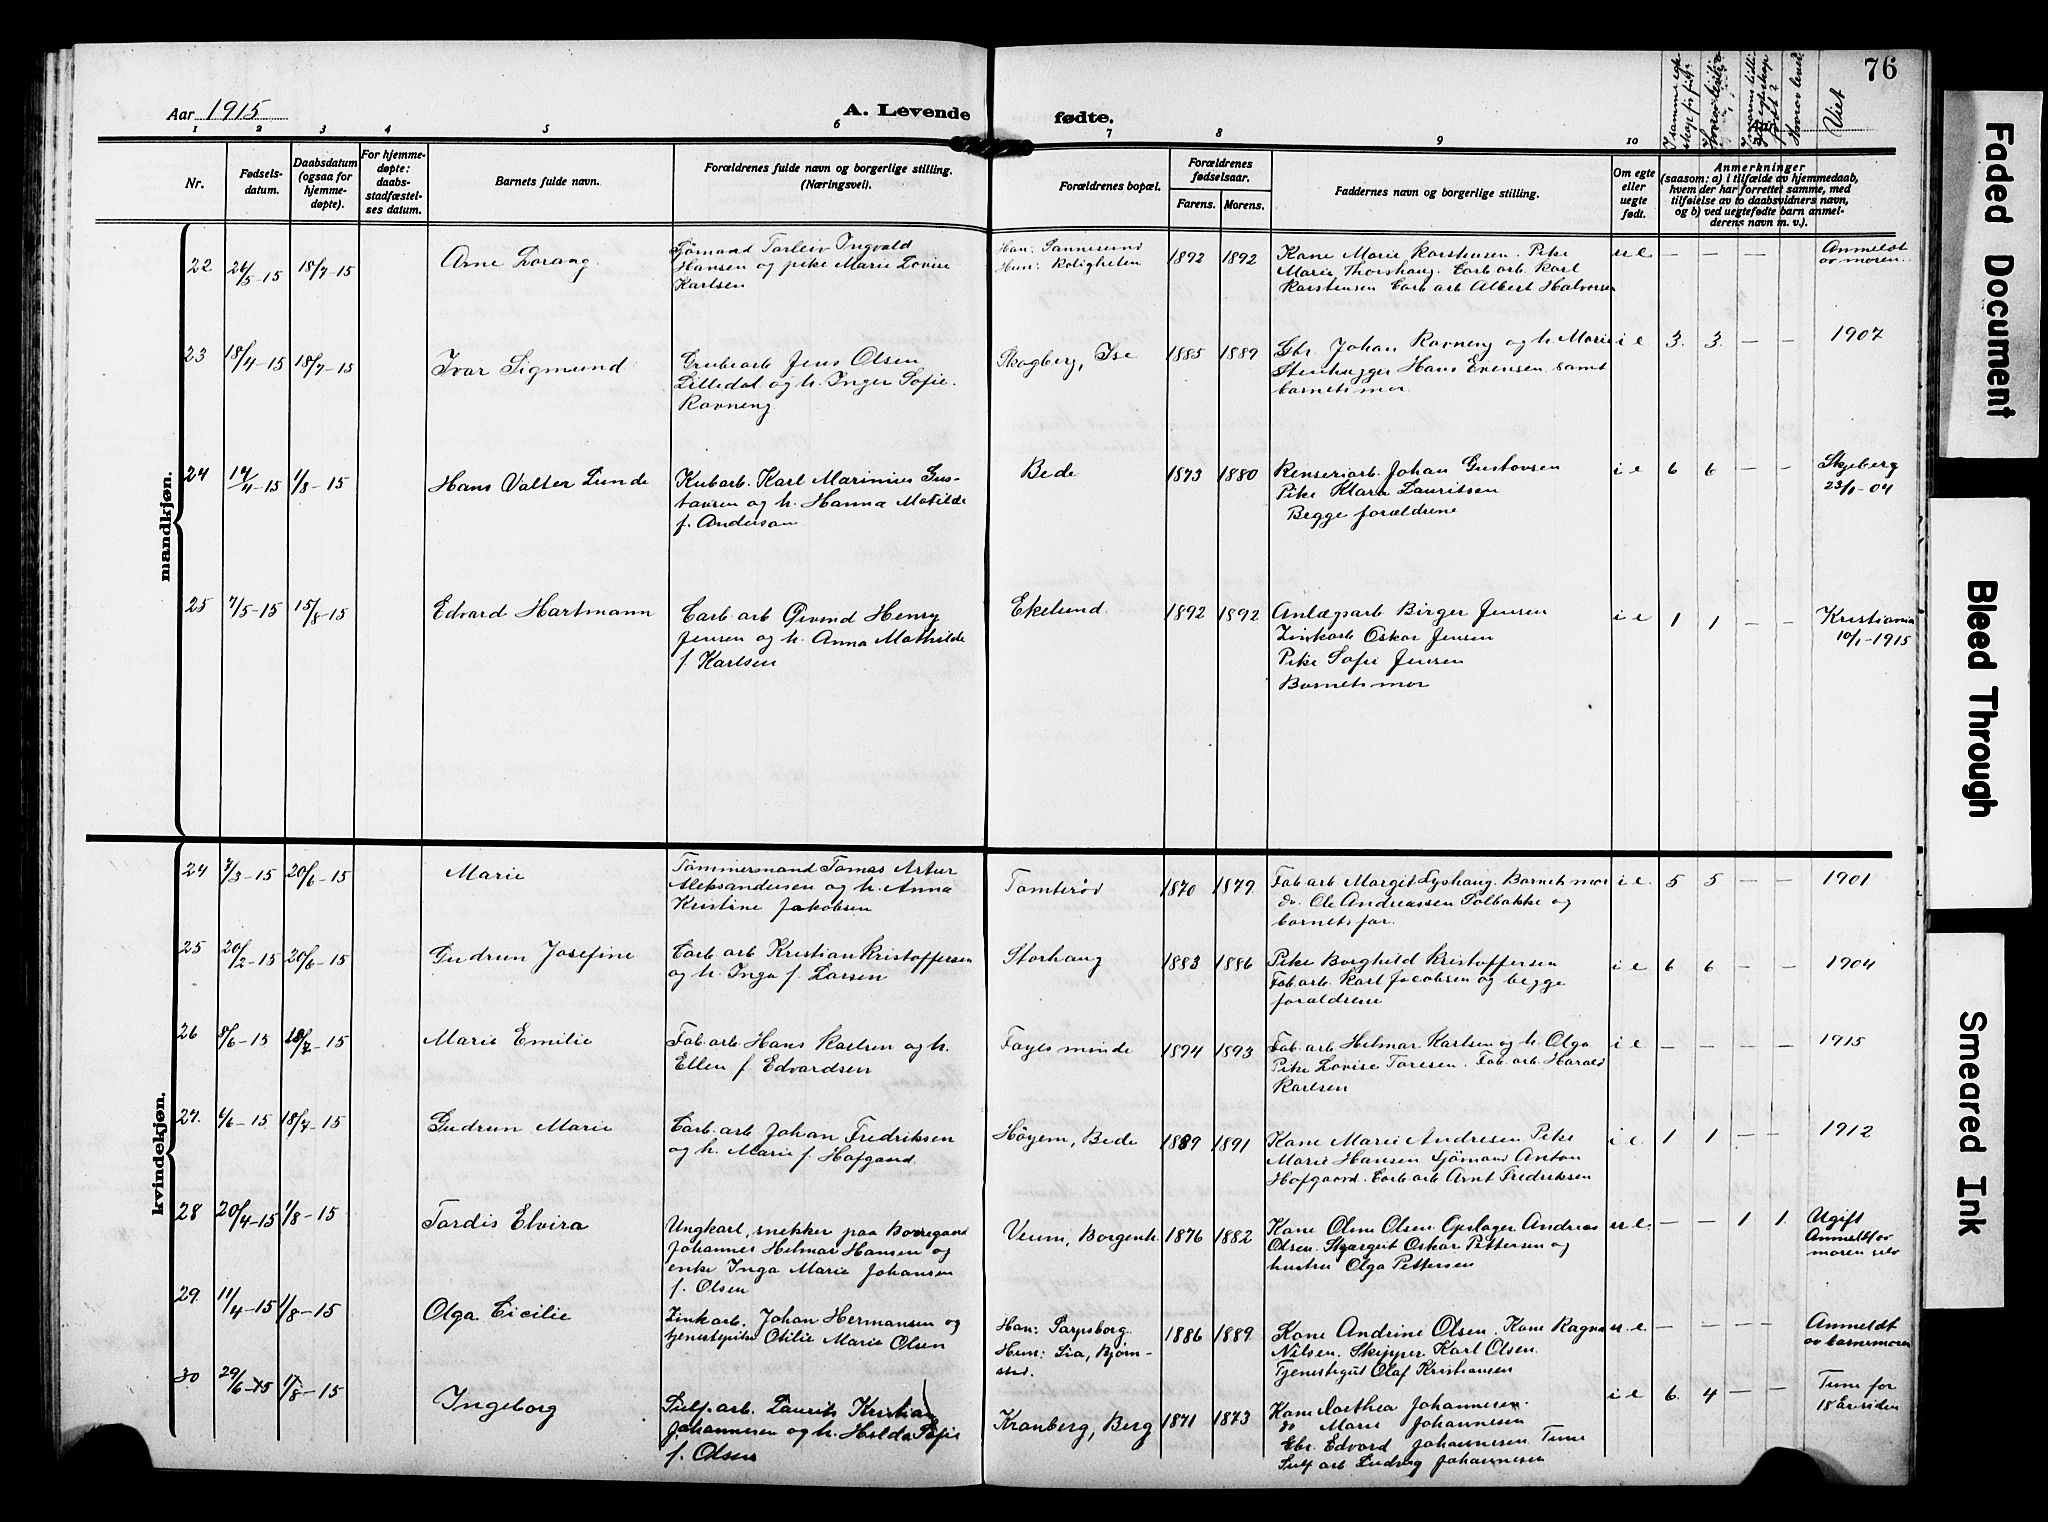 76
Aar 1915
A. Levende fødte.
1 2 3 4 5 6 7 8 9 10
Nr.
Fødsels-
datum.
Daabsdatum
(ogsaa for
hjemme-
døpte).
For hjemme-
døpte:
daabs-
stadfæstel-
ses datum.
Barnets fulde navn.
Forældrenes fulde navn og borgerlige stilling.
(Næringsvei).
Forældrenes bopæl.
Forældrenes
fødselsaar.
Farens. Morens.
Faddernes navn og borgerlige stilling.
Om egte
eller
uegte
født.
Anmerkninger
(saasom: a) i tilfælde av hjemmedaab,
hvem der har forrettet samme, med
tilføielse av to daabsvidners navn,
og b) ved uegtefødte barn anmel-
derens navn m. v.).
Viet
mandkjøn.
22
26/5-15
18/7-15
Arne Lorang
Sjømand Torleiv Ingvald
Hansen og pike Marie Lovise
Karlsen
Han: Sannesund
Hun: Roligheten
1892
1892
Kone Marie Karstensen. Pike
Marie Thorshaug. Carb. arb. Karl
Karstensen Carb. arb. Albert Halvorsen
u e
— — — —
Anmeldt
av moren.
23
18/4-15
18/7-15
Ivar Sigmund
Grubearb. Jens Olsen
Lilledal og h. Inger Sofie
Ravneng
Skogberg, Ise
1885
1889
Gbr. Johan Ravneng og h. Marie
Stenhugger Hans Evensen samt
barnets mor.
i e
3. 3. — —
1907
24
14/4-15
1/8-15
Hans Valter Lunde
Kubarb. Karl Marinius Gus-
tavsen og h. Hanna Matilde
f. Anderson
Bede
1873
1880
Renseriarb. Johan Gustavsen
Pike Klara Lauritsen
Begge forældrene
i e
6 6 — —
Skjeberg
23/1-04
25
7/5-15
15/8-15
Edvard Hartmann
Carb. arb. Øivind Henry
Jensen og h. Anna Mathilde
f. Karlsen
Ekelund.
1892
1892
Anlægsarb. Birger Jensen
Zinkarb. Oskar Jensen
Pike Sofie Jensen
Barnets mor
i e
1 1 — —
Kristiania
10/1-1915
kvindekjøn.
24
7/3-15
20/6-15
Marie
Tømmermand Tomas Artur
Aleksandersen og h. Anna
Kristine Jakobsen
Tomterød
1870
1879
Fab. arb. Margit Lyshaug. Barnets mor
do. Ole Andreassen Solbakke og
barnets far.
i e.
5 5 — —
1901
25
20/2-15
20/6-15
Gudrun Josefine
Carb. arb. Kristian Kristoffersen
og h. Inga f. Larsen
Storhaug
1883
1886
Pike Borghild Kristoffersen
Fab. arb. Karl Jacobsen og begge
forældrene
i e
6 6 — —
1904
26
8/6-15
18/7-15
Marie Emilie
Fab. arb. Hans Karlsen og h.
Ellen f. Edvardsen
Fayes minde
1894
1893
Fab. arb. Helmar Karlsen og h. Olga
Pike Lovise Toresen. Fab. arb. Harald
Karlsen
i e
— — — —
1915
27.
6/6-15
18/7-15
Gudrun Marie
Carb. arb. Johan Fredriksen
og h. Marie f. Hofgaard.
Høyem, Bede
1889
1891
Kone Marie Andresen Pike
Marie Hansen Sjømand Anton
Hofgaard. Carb. arb. Arnt Fredriksen
i e.
1 1 — —
1912
28
20/4-15
1/8-15
Tordis Elvira
Ungkarl, snekker paa Borregaard
Johannes Helmar Hansen og
enke Inga Marie Johansen
f. Olsen
Veum, Borgenh.
1876
1882
Kone Oline Olsen. Opslager Andreas
Olsen. Skjærgut Oskar Pettersen og
hustru Olga Pettersen
u e.
— — 1 1.
Ugift
Anmeldt av
moren selv
29.
11/4-15
1/8-15
Olga Cicilie
Zinkarb. Johan Hermansen og
tjenestepike Otilie Marie Olsen
Han: Sarpsborg.
Hun: Lia, Bjørn-
stad.
1886
1889
Kone Andrine Olsen. Kone Ragna
Nilsen. Skipper Karl Olsen.
Tjenestegut Olaf Kristiansen
u e.
— — — —
Anmeldt
av barnemoren
30
29/6-15
1/8-15
Ingeborg
Sulf. arb. Laurits Kristian
Johannesen og h. Hulda Sofie
f. Olsen
Kronberg, Berg
1871
1873
Kone Dorthea Johannesen.
do Marie Johannesen
Gbr. Edvard Johannesen Tune
Sulf. arb. Ludvig Johannesen
i e
6. 4 — —
Tune for
18 år siden
Faded Document
Bleed Through
Smeared Ink